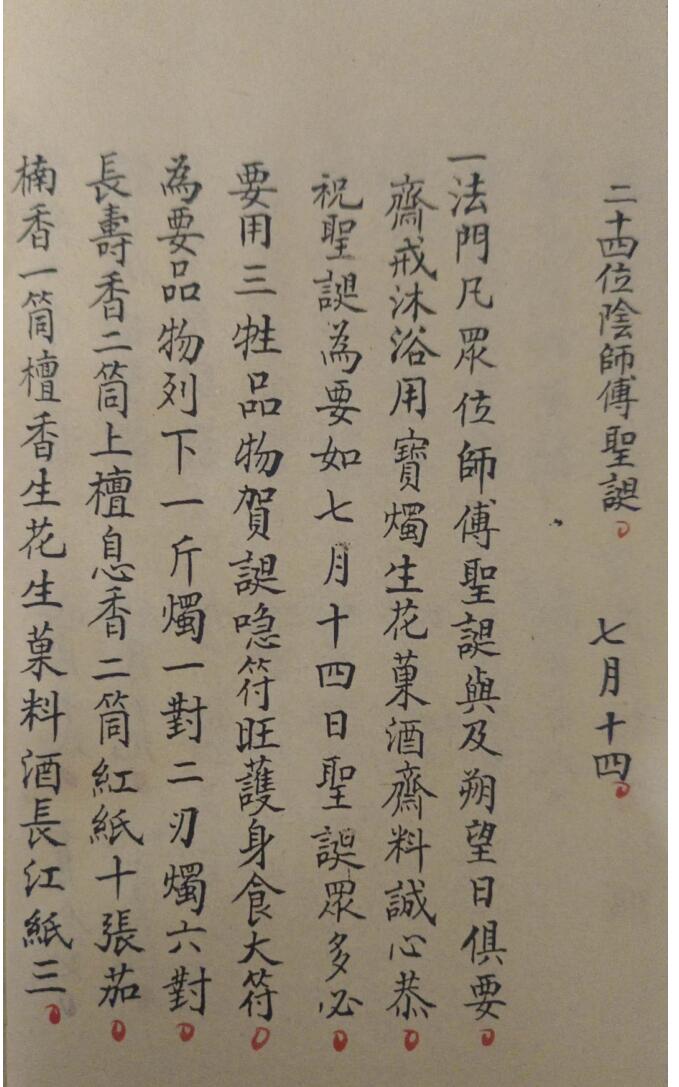 二十四位陰師傅聖誕 七月十四
一法門凡眾位師傅聖誕與及朔望日俱要
齋戒沐浴用寶燭生花菓酒齋料誠心恭
祝聖誕為要如七月十四日聖誕眾多必
要用三牲品物賀誕喼符旺護身食大符
為要品物列下一斤燭一對二刃燭六對
長壽香二筒上檀息香二筒紅紙十張茄
楠香一筒檀香生花生菓料酒長红紙三